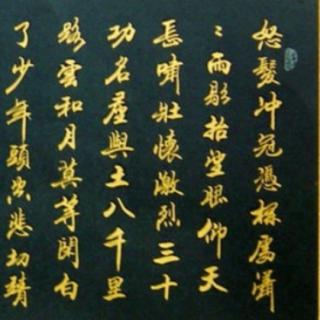 怒髮冲冠憑欄處瀟
〻雨歇抬望眼仰天
長嘯壯懷激烈三十
功名塵與土八千里
路雲和月莫等閑白
了少年頭空悲切靖